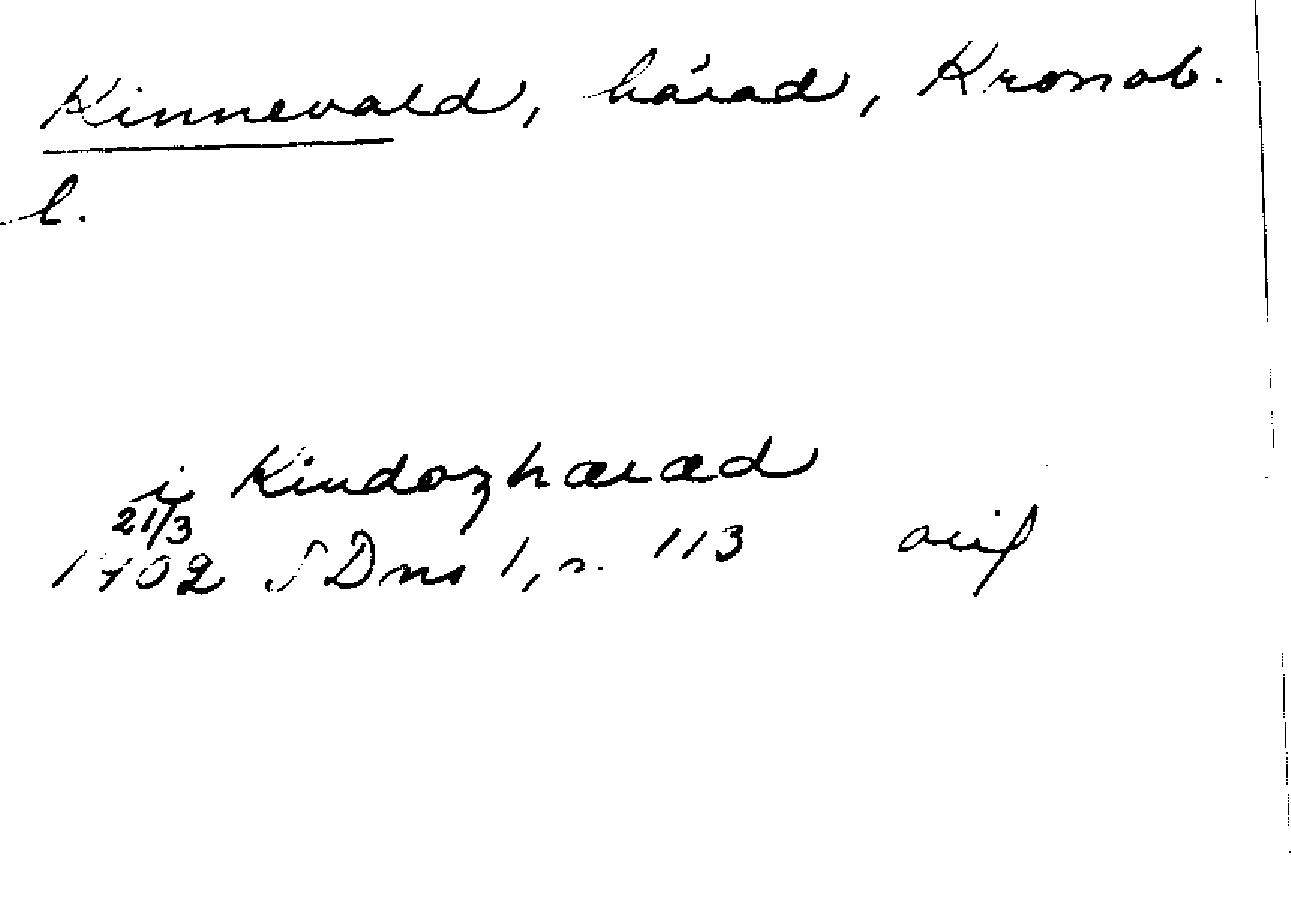 Kinnevald, härad, Kronob.
l.
i Kindozhæræd
21/3
1402 SDns 1, s. 113 orig